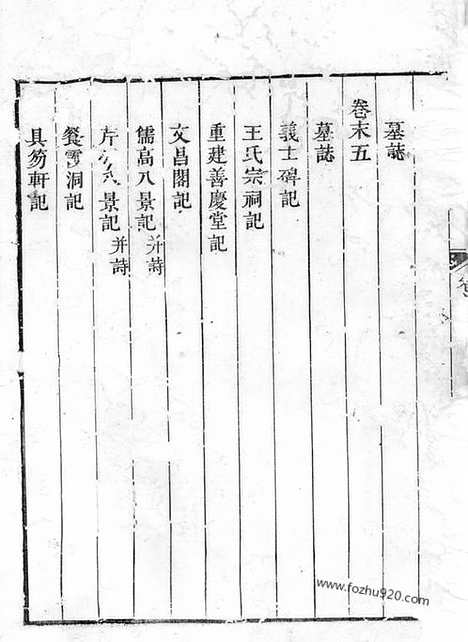 墓誌
卷末五
墓誌
義士碑記
王氏宗祠記
重建善慶堂記
文昌閣記
儒高八景記 并詩
芹 景記 并詩
餐雪洞記
具笏軒記
www.fozhu920.com